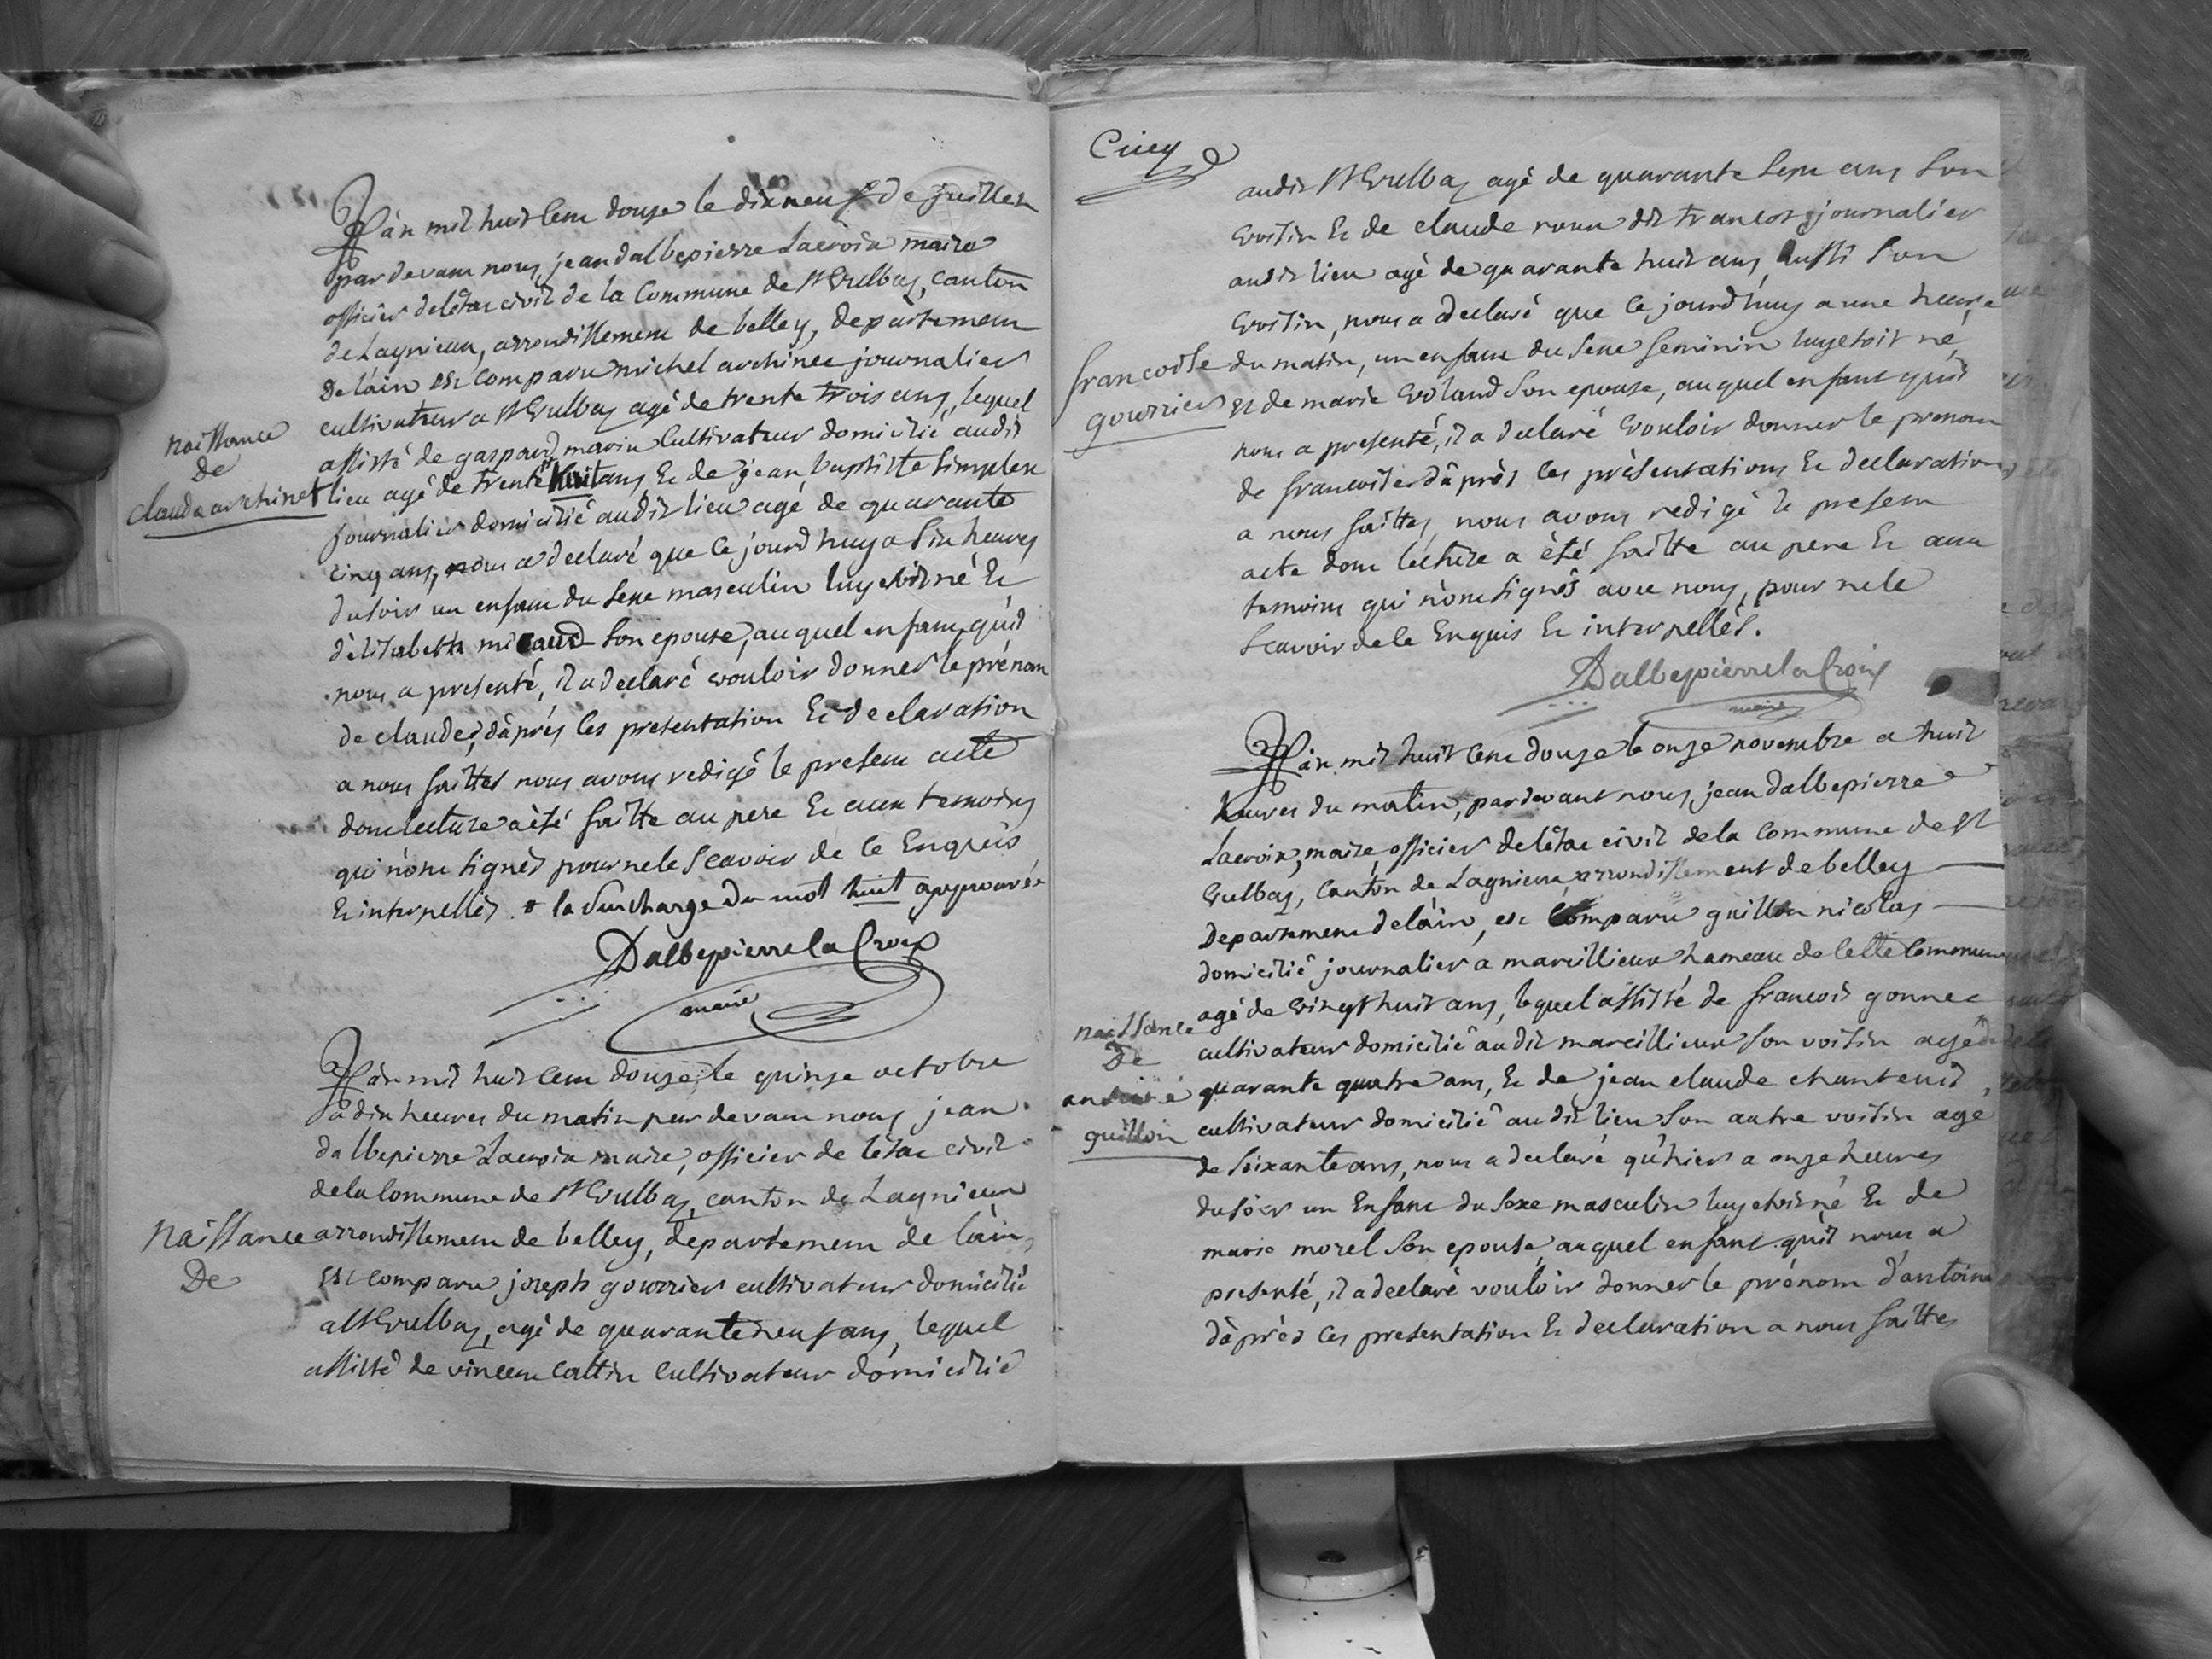 L'an mil huit cent douze le dix neuf de juillet
pardevant nous jean dalbepierre Lacroix maire
officier de létat civil de la Commune de St Vulbas, canton
de Lagnieux, arrondissement de belley, departement
de láin est comparu michel archinet journalier
cultivateur a St Vulbas agé de trente trois ans, lequel
assisté de gaspard marin Cultivateur domicilié audit
naissance
de
claude archinet
lieu agé de trente huit ans, Et de jean baptiste Simplex
journalier domicilié audit lieu agé de quarante
cinq ans, nous a declaré que ce jourd'huy a six heures
du soir un enfant du sexe masculin luy etoit né Et
d'élisabeth micaud son epouse, auquel enfant qu'il
nous a presenté, il a declaré vouloir donner le prénom
de claude, d'aprés les presentation Et declaration
a nous faittes nous avons redigé le present acte
dont lecture a été faitte au pere Et aux temoins
qui n'ont signés pour ne le scavoir de ce Enquis
Et interpellés. # la surcharge du mot huit approuvée
Dalbepierre la Croix
maire
L'an mil huit cent douze, le quinze octobre
a dix heures du matin par devant nous jean
dalbepierre Lacroix maire, officier de létat civil
de la Commune de St Vulbas, canton de Lagnieux
Naissance
De
arrondissement de belley, departement de láin,
est comparu joseph gourrier cultivateur domicilié
a St Vulbas, agé de quarante neuf ans, lequel
assisté de vincent Cattin Cultivateur domicilié
Cinq
audit St Vulbas agé de quarante sept ans son
voisin Et de claude roux dit francos journalier
audit lieu agé de quarante huit ans, aussi son
voisin, nous a declaré que ce jourd'huy a une heure
francoise
gourrier
du matin, un enfant du sexe feminin luy etoit né,
Et de marie Voland son epouse, auquel enfant qu'il
nous a presenté, il a declaré vouloir donner le prenom
de francoise d'après les présentations Et declarations
a nous faittes, nous avons redigé le present
acte dont lecture a été faitte au pere Et aux
temoins qui n'ont signés avec nous, pour ne le
scavoir de ce Enquis Et interpellés.
Dalbepierre la Croix
maire
L'an mil huit cent douze le onze novembre a huit
heures du matin, pardevant nous jean dalbepierre
Lacroix, maire, officier de létat civil de la Commune de St
Vulbas, Canton de Lagnieux, arrondissement de belley
Departement de láin, est Comparu guillon nicolas
domicilié journalier a marcillieux hameau de Cette Commune
agé de vingt huit ans, lequel assisté de francois gonnet
naissance
De
antoine
guillon
cultivateur domicilié audit marcillieux son voisin agé de
quarante quatre ans, Et de jean claude chanteuil,
cultivateur domicilié audit lieu son autre voisin agé
de soixante ans, nous a declaré qu'hier a onze heures
du soir un Enfant du sexe masculin luy etoit né Et de
marie morel son epouse, auquel enfant qu'il nous a
presenté, il a declaré vouloir donner le prénom d'antoine
d'aprés ces presentation Et declaration a nous faittes